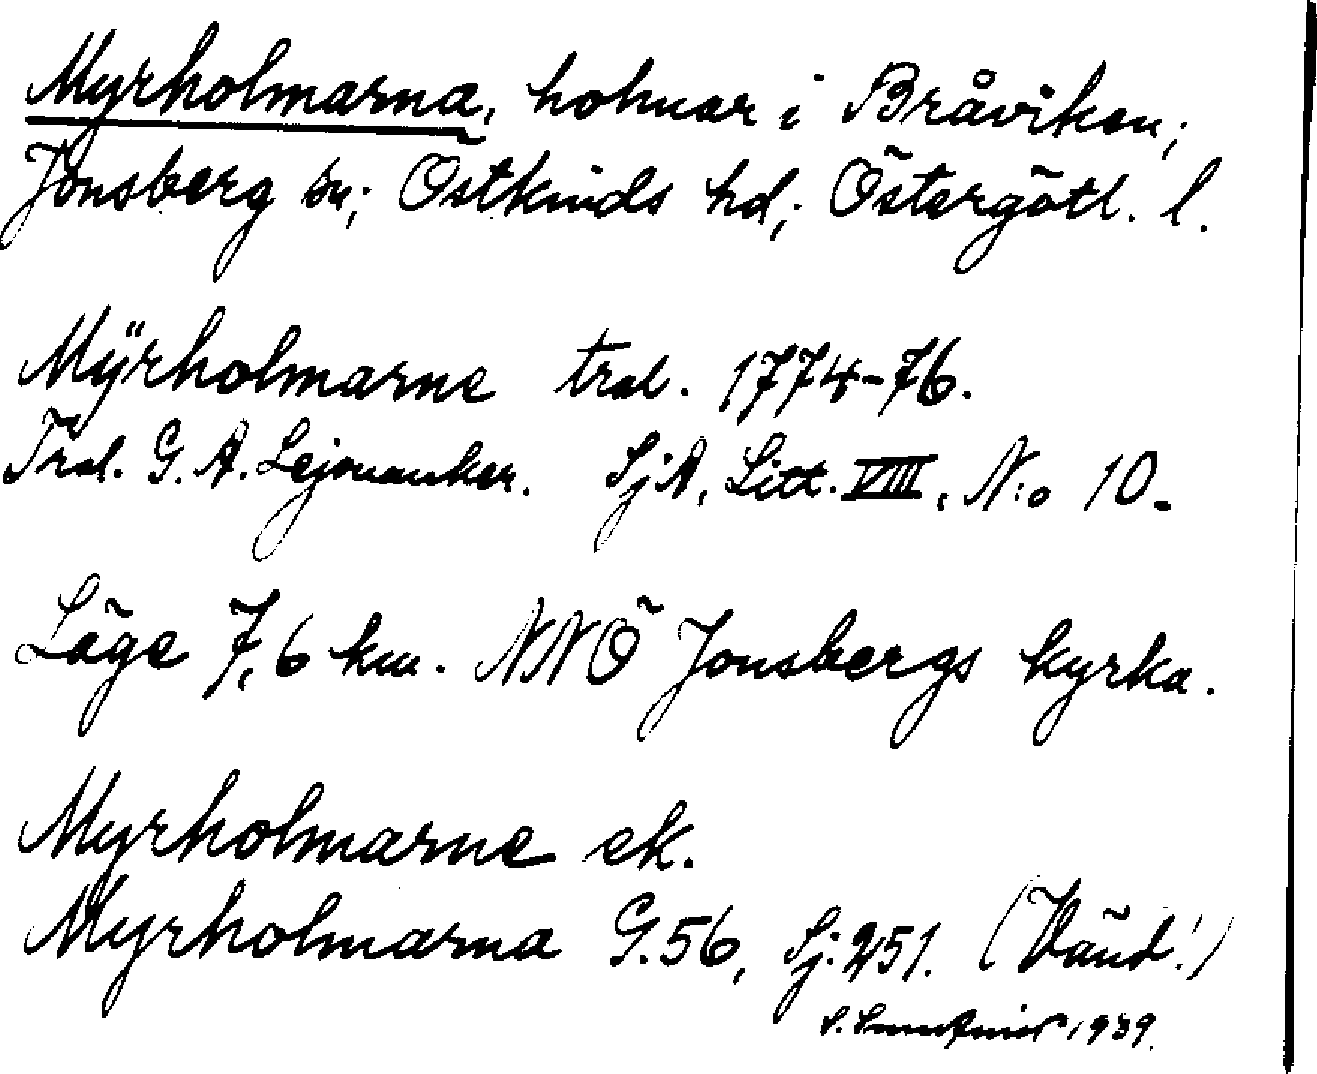 Myrholmarna, holmar i Bråviken;
Jonsberg sn; Östkinds hd; Östergötl. l.
Mÿrholmarne trol. 1774-76.
Trol. G. A. Lejonanker. SjA, Litt. VIII, N:o 10.
Läge 7,6 km. NNÖ Jonsbergs kyrka.
Myrholmarne ek.
Myrholmarna G.56, Sj:251. (Vänd!)
1939.